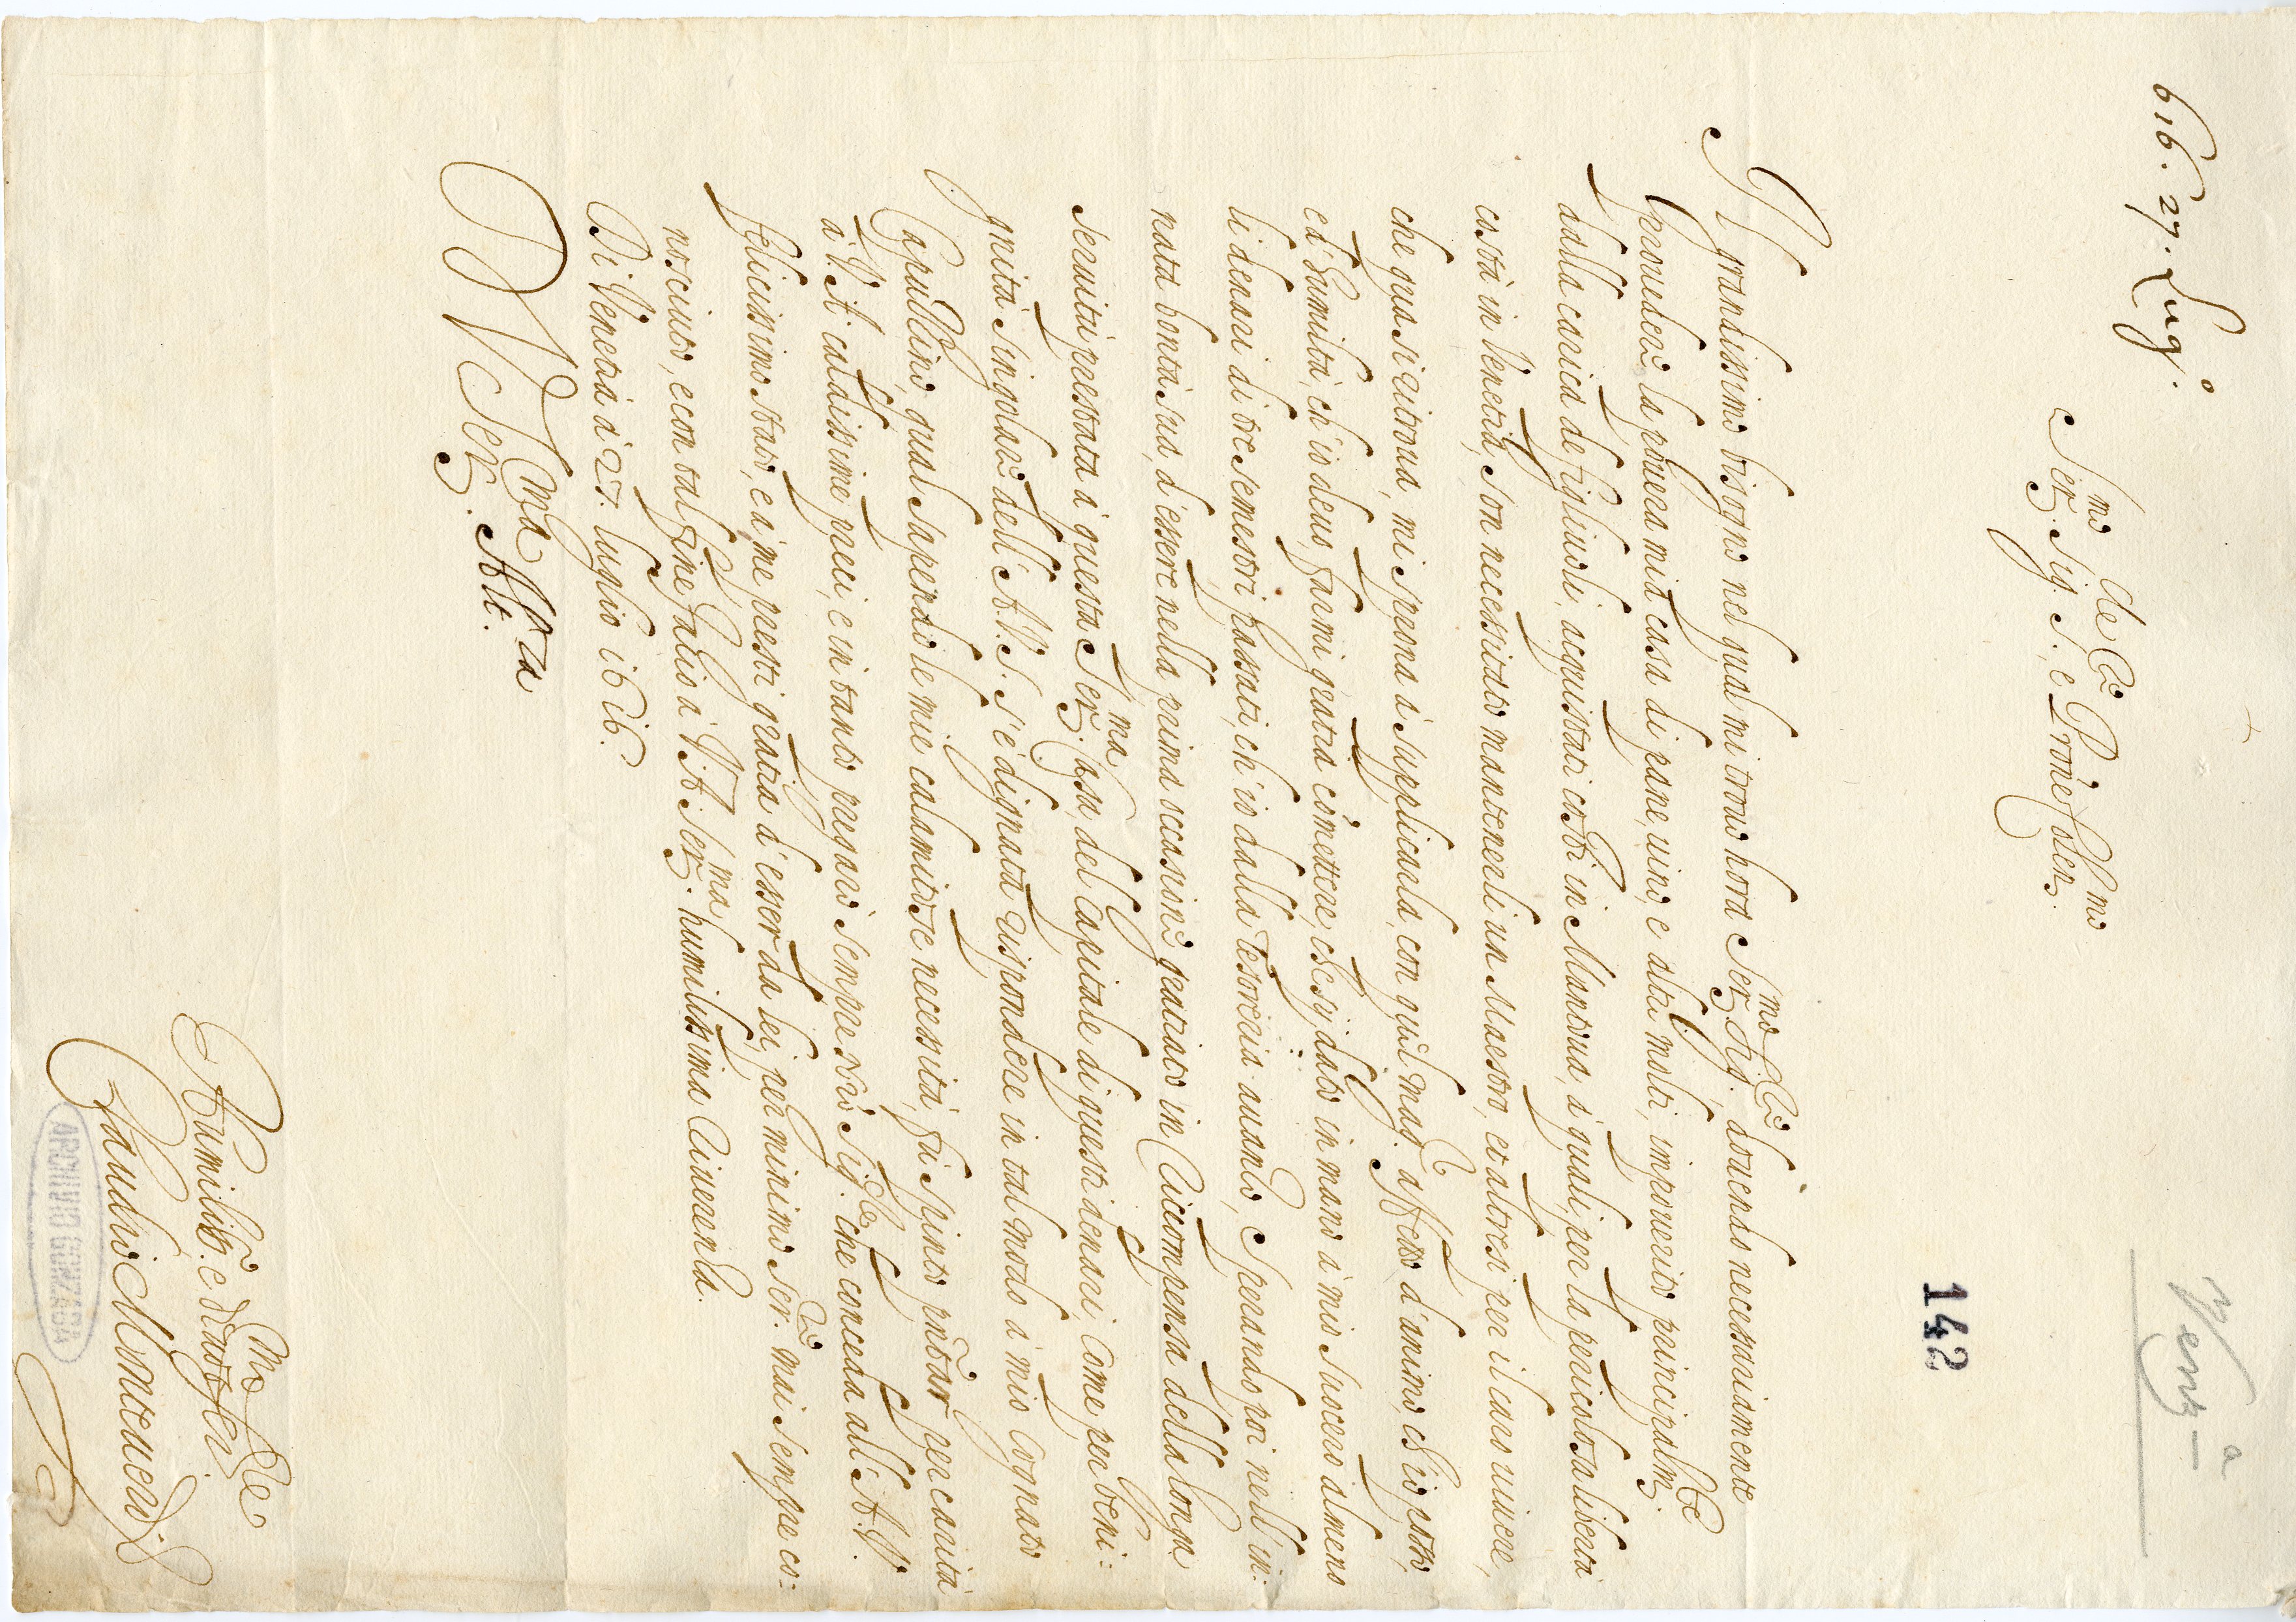 616. 27. Lug.º
Venez.ª
+
Ser.mo Sig.r S.r, e Prone Colen.mo
142
Il grandissimo bisogno nel qual mi trouo hora Ser.mo Sig.re, douendo necessariamente
prouedere la pouera mia casa di pane, uino, e altri molti, impouerito principalm.te
dalla carica de figliuoli, acquistati costì in Mantoua, à quali, per la pericolosa libertà
costà in Venetia, son necessitato mantenerli un Maestro, et altresi per il caro uiuere,
che qua si ritroua, mi sprona à supplicarla, con quel magg.r affetto d'animo, ch'io posso,
ed humiltà, ch'io deuo, farmi gratia cõmettere, che sij dato in mano à mio Suocero almeno
li denari di tre semestri passati, ch'io dalla Tesoreria auanzo, Sperando poi nell'in:
nata bontà sua, d'essere nella prima occasione gratiato in Riccompensa della longa
seruitù prestata à questa Ser.ma Casa, del Capitale di questi denari, Come per beni:
gnità Singolare dell'A.V.S. s'è dignata rispondere in tal modo à mio Cognato
Capuccino, qual sapendo le mie calamitose necessità, fù spinto portar per carità
à V.A. caldissime preci, e in tanto pregarò sempre N'ro Sig.re che conceda all'A.V.
felicissimo stato, e à me presti gratia d'esser da lei, per minimo ser.re mai sempre co:
nosciuto, e con tal fine faccio à V.A. Ser.ma humilissima Riuerenza.
Di Venetia à 27. luglio 1616.
D V Ser.ma Alt.za
Humiliss.mo e deuotiss. Ser.re
Claudio Monteuerdi
ARCHIVIO GONZAGA